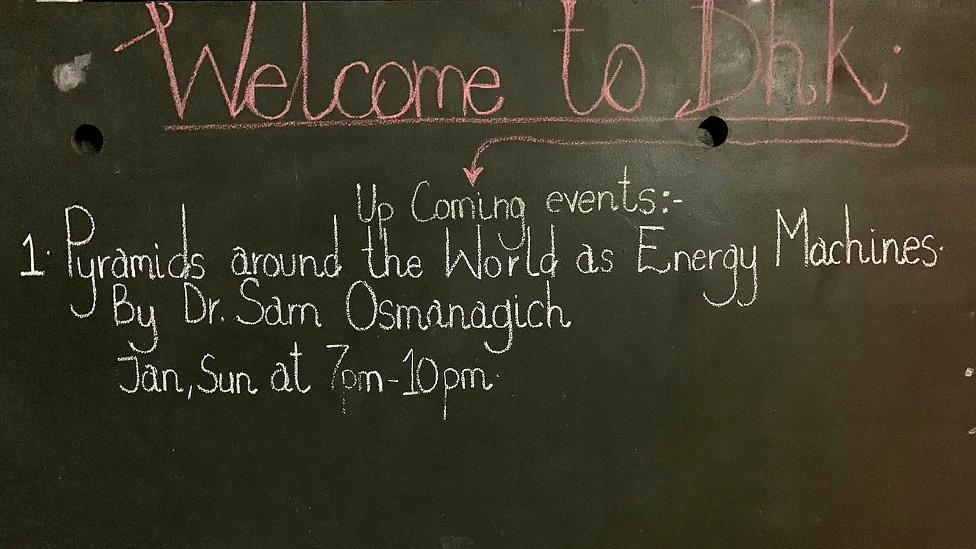 Welcome to Dhk.
Up Coming events:-
1. Pyramids around the World as Energy Machines.
By Dr. Sam Osmanagich
Jan, Sun at 7pm-10pm.